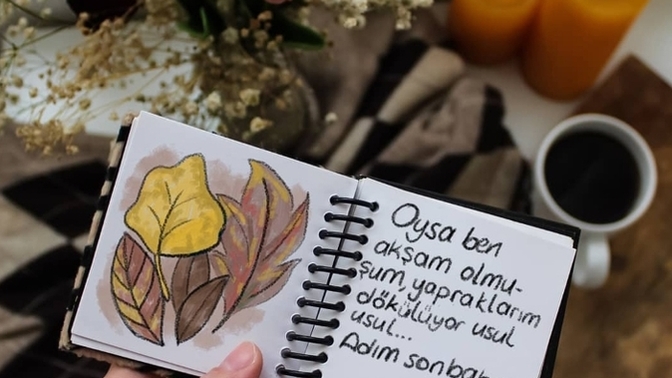 Oysa ben
akşam olmu-
şum, yapraklarım
dökülüyor usul
usul...
Adım sonbah